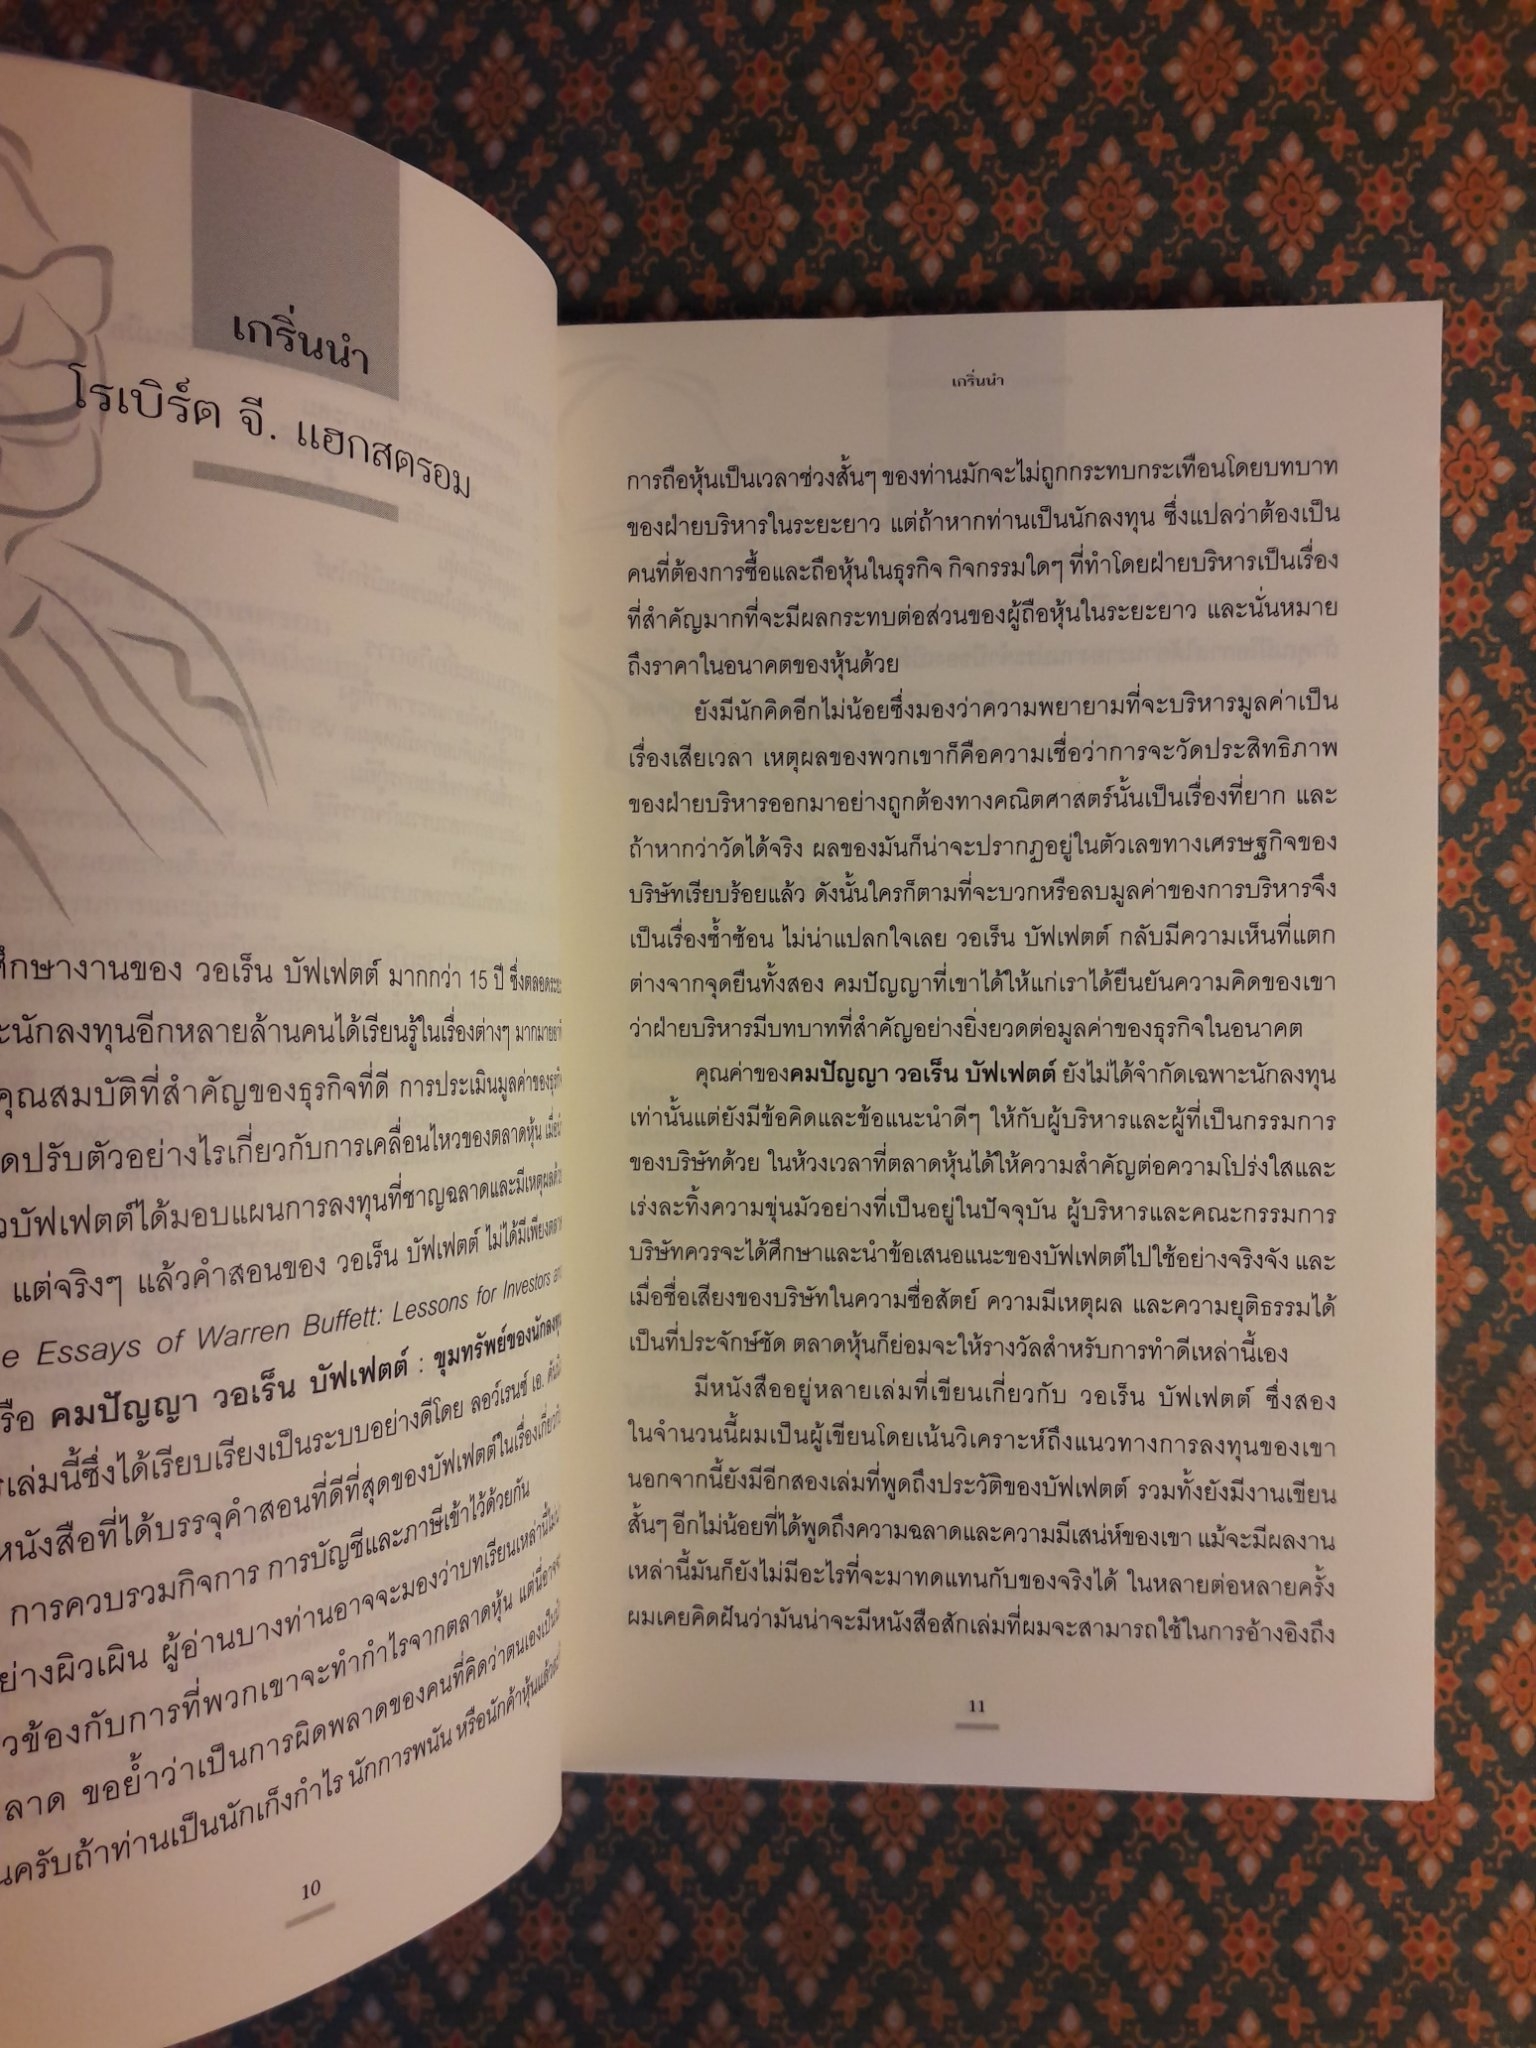 เกริ่นนำ
โรเบิร์ต จี. แฮกสตรอม
ศึกษางานของ วอเร็น บัฟเฟตต์ มากกว่า 15 ปี ซึ่งตลอดระยะ
นักลงทุนอีกหลายล้านคนได้เรียนรู้ในเรื่องต่างๆ มากมาย
คุณสมบัติที่สำคัญของธุรกิจที่ดี การประเมินมูลค่าของธุรกิจ
ปรับตัวอย่างไรเกี่ยวกับการเคลื่อนไหวของตลาดหุ้น
บัฟเฟตต์ได้มอบแผนการลงทุนที่ชาญฉลาดและมีเหตุผล
แต่จริงๆ แล้วคำสอนของ วอเร็น บัฟเฟตต์ ไม่ได้มีเพียง
Essays of Warren Buffett: Lessons for Investors
คมปัญญา วอเร็น บัฟเฟตต์ : ขุมทรัพย์ของนักลงทุน
เล่มนี้ซึ่งได้เรียบเรียงเป็นระบบอย่างดีโดย ลอว์เรนซ์ เอ.
หนังสือที่ได้บรรจุคำสอนที่ดีที่สุดของบัฟเฟตต์ในเรื่องเกี่ยวกับ
การควบรวมกิจการ การบัญชีและภาษีเข้าไว้ด้วยกัน
อย่างผิวเผิน ผู้อ่านบางท่านอาจจะมองว่าบทเรียนเหล่านี้
ข้องกับการที่พวกเขาจะทำกำไรจากตลาดหุ้น แต่นี่
ขอย้ำว่าเป็นการผิดพลาดของคนที่คิดว่าตนเองเป็น
ครับถ้าท่านเป็นนักเก็งกำไร นักการพนัน หรือนักค้าหุ้นแล้ว
10
เกริ่นนำ
การถือหุ้นเป็นเวลาช่วงสั้นๆ ของท่านมักจะไม่ถูกกระทบกระเทือนโดยบทบาท
ของฝ่ายบริหารในระยะยาว แต่ถ้าหากท่านเป็นนักลงทุน ซึ่งแปลว่าต้องเป็น
คนที่ต้องการซื้อและถือหุ้นในธุรกิจ กิจกรรมใดๆ ที่ทำโดยฝ่ายบริหารเป็นเรื่อง
ที่สำคัญมากที่จะมีผลกระทบต่อส่วนของผู้ถือหุ้นในระยะยาว และนั่นหมาย
ถึงราคาในอนาคตของหุ้นด้วย
ยังมีนักคิดอีกไม่น้อยซึ่งมองว่าความพยายามที่จะบริหารมูลค่าเป็น
เรื่องเสียเวลา เหตุผลของพวกเขาก็คือความเชื่อว่าการจะวัดประสิทธิภาพ
ของฝ่ายบริหารออกมาอย่างถูกต้องทางคณิตศาสตร์นั้นเป็นเรื่องที่ยาก และ
ถ้าหากว่าวัดได้จริง ผลของมันก็น่าจะปรากฏอยู่ในตัวเลขทางเศรษฐกิจของ
บริษัทเรียบร้อยแล้ว ดังนั้นใครก็ตามที่จะบวกหรือลบมูลค่าของการบริหารจึง
เป็นเรื่องซ้ำซ้อน ไม่น่าแปลกใจเลย วอเร็น บัฟเฟตต์ กลับมีความเห็นที่แตก
ต่างจากจุดยืนทั้งสอง คมปัญญาที่เขาได้ให้แก่เราได้ยืนยันความคิดของเขา
ว่าฝ่ายบริหารมีบทบาทที่สำคัญอย่างยิ่งยวดต่อมูลค่าของธุรกิจในอนาคต
คุณค่าของคมปัญญา วอเร็น บัฟเฟตต์ ยังไม่ได้จำกัดเฉพาะนักลงทุน
เท่านั้นแต่ยังมีข้อคิดและข้อแนะนำดีๆ ให้กับผู้บริหารและผู้ที่เป็นกรรมการ
ของบริษัทด้วย ในห้วงเวลาที่ตลาดหุ้นได้ให้ความสำคัญต่อความโปร่งใสและ
เร่งละทิ้งความขุ่นมัวอย่างที่เป็นอยู่ในปัจจุบัน ผู้บริหารและคณะกรรมการ
บริษัทควรจะได้ศึกษาและนำข้อเสนอแนะของบัฟเฟตต์ไปใช้อย่างจริงจัง และ
เมื่อชื่อเสียงของบริษัทในความซื่อสัตย์ ความมีเหตุผล และความยุติธรรมได้
เป็นที่ประจักษ์ชัด ตลาดหุ้นก็ย่อมจะให้รางวัลสำหรับการทำดีเหล่านี้เอง
มีหนังสืออยู่หลายเล่มที่เขียนเกี่ยวกับ วอเร็น บัฟเฟตต์ ซึ่งสอง
ในจำนวนนี้ผมเป็นผู้เขียนโดยเน้นวิเคราะห์ถึงแนวทางการลงทุนของเขา
นอกจากนี้ยังมีอีกสองเล่มที่พูดถึงประวัติของบัฟเฟตต์ รวมทั้งยังมีงานเขียน
สั้นๆ อีกไม่น้อยที่ได้พูดถึงความฉลาดและความมีเสน่ห์ของเขา แม้จะมีผลงาน
เหล่านี้มันก็ยังไม่มีอะไรที่จะมาทดแทนกับของจริงได้ ในหลายต่อหลายครั้ง
ผมเคยคิดฝันว่ามันน่าจะมีหนังสือสักเล่มที่ผมจะสามารถใช้ในการอ้างอิงถึง
11